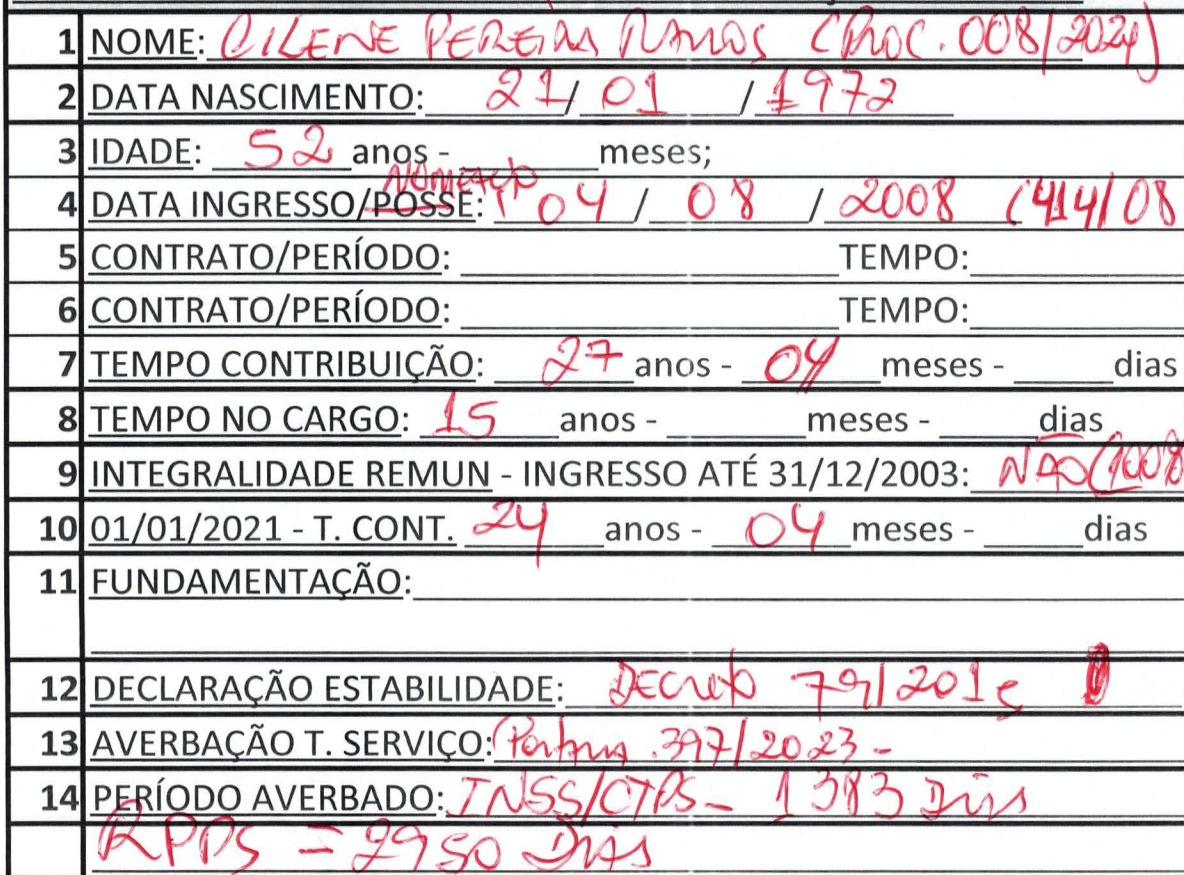 1 NOME: CILENE PEREIRA RAMOS (PROC. 008/2024)
2 DATA NASCIMENTO: 21/ 01 / 1972
3 IDADE: 52 anos - meses;
NOMEAÇÃO
4 DATA INGRESSO/POSSE: 04 / 08 / 2008 (414/08
5 CONTRATO/PERÍODO: TEMPO:
6 CONTRATO/PERÍODO: TEMPO:
7 TEMPO CONTRIBUIÇÃO: 27 anos - 04 meses - dias
8 TEMPO NO CARGO: 15 anos - meses - dias
9 INTEGRALIDADE REMUN - INGRESSO ATÉ 31/12/2003: NÃO
10 01/01/2021 - T. CONT. 24 anos - 04 meses - dias
11 FUNDAMENTAÇÃO:
12 DECLARAÇÃO ESTABILIDADE: DECRETO 79/2015
13 AVERBAÇÃO T. SERVIÇO: Portaria 397/2023 -
14 PERÍODO AVERBADO: INSS/CTPS - 1383 DIAS
RPPS = 2950 DIAS